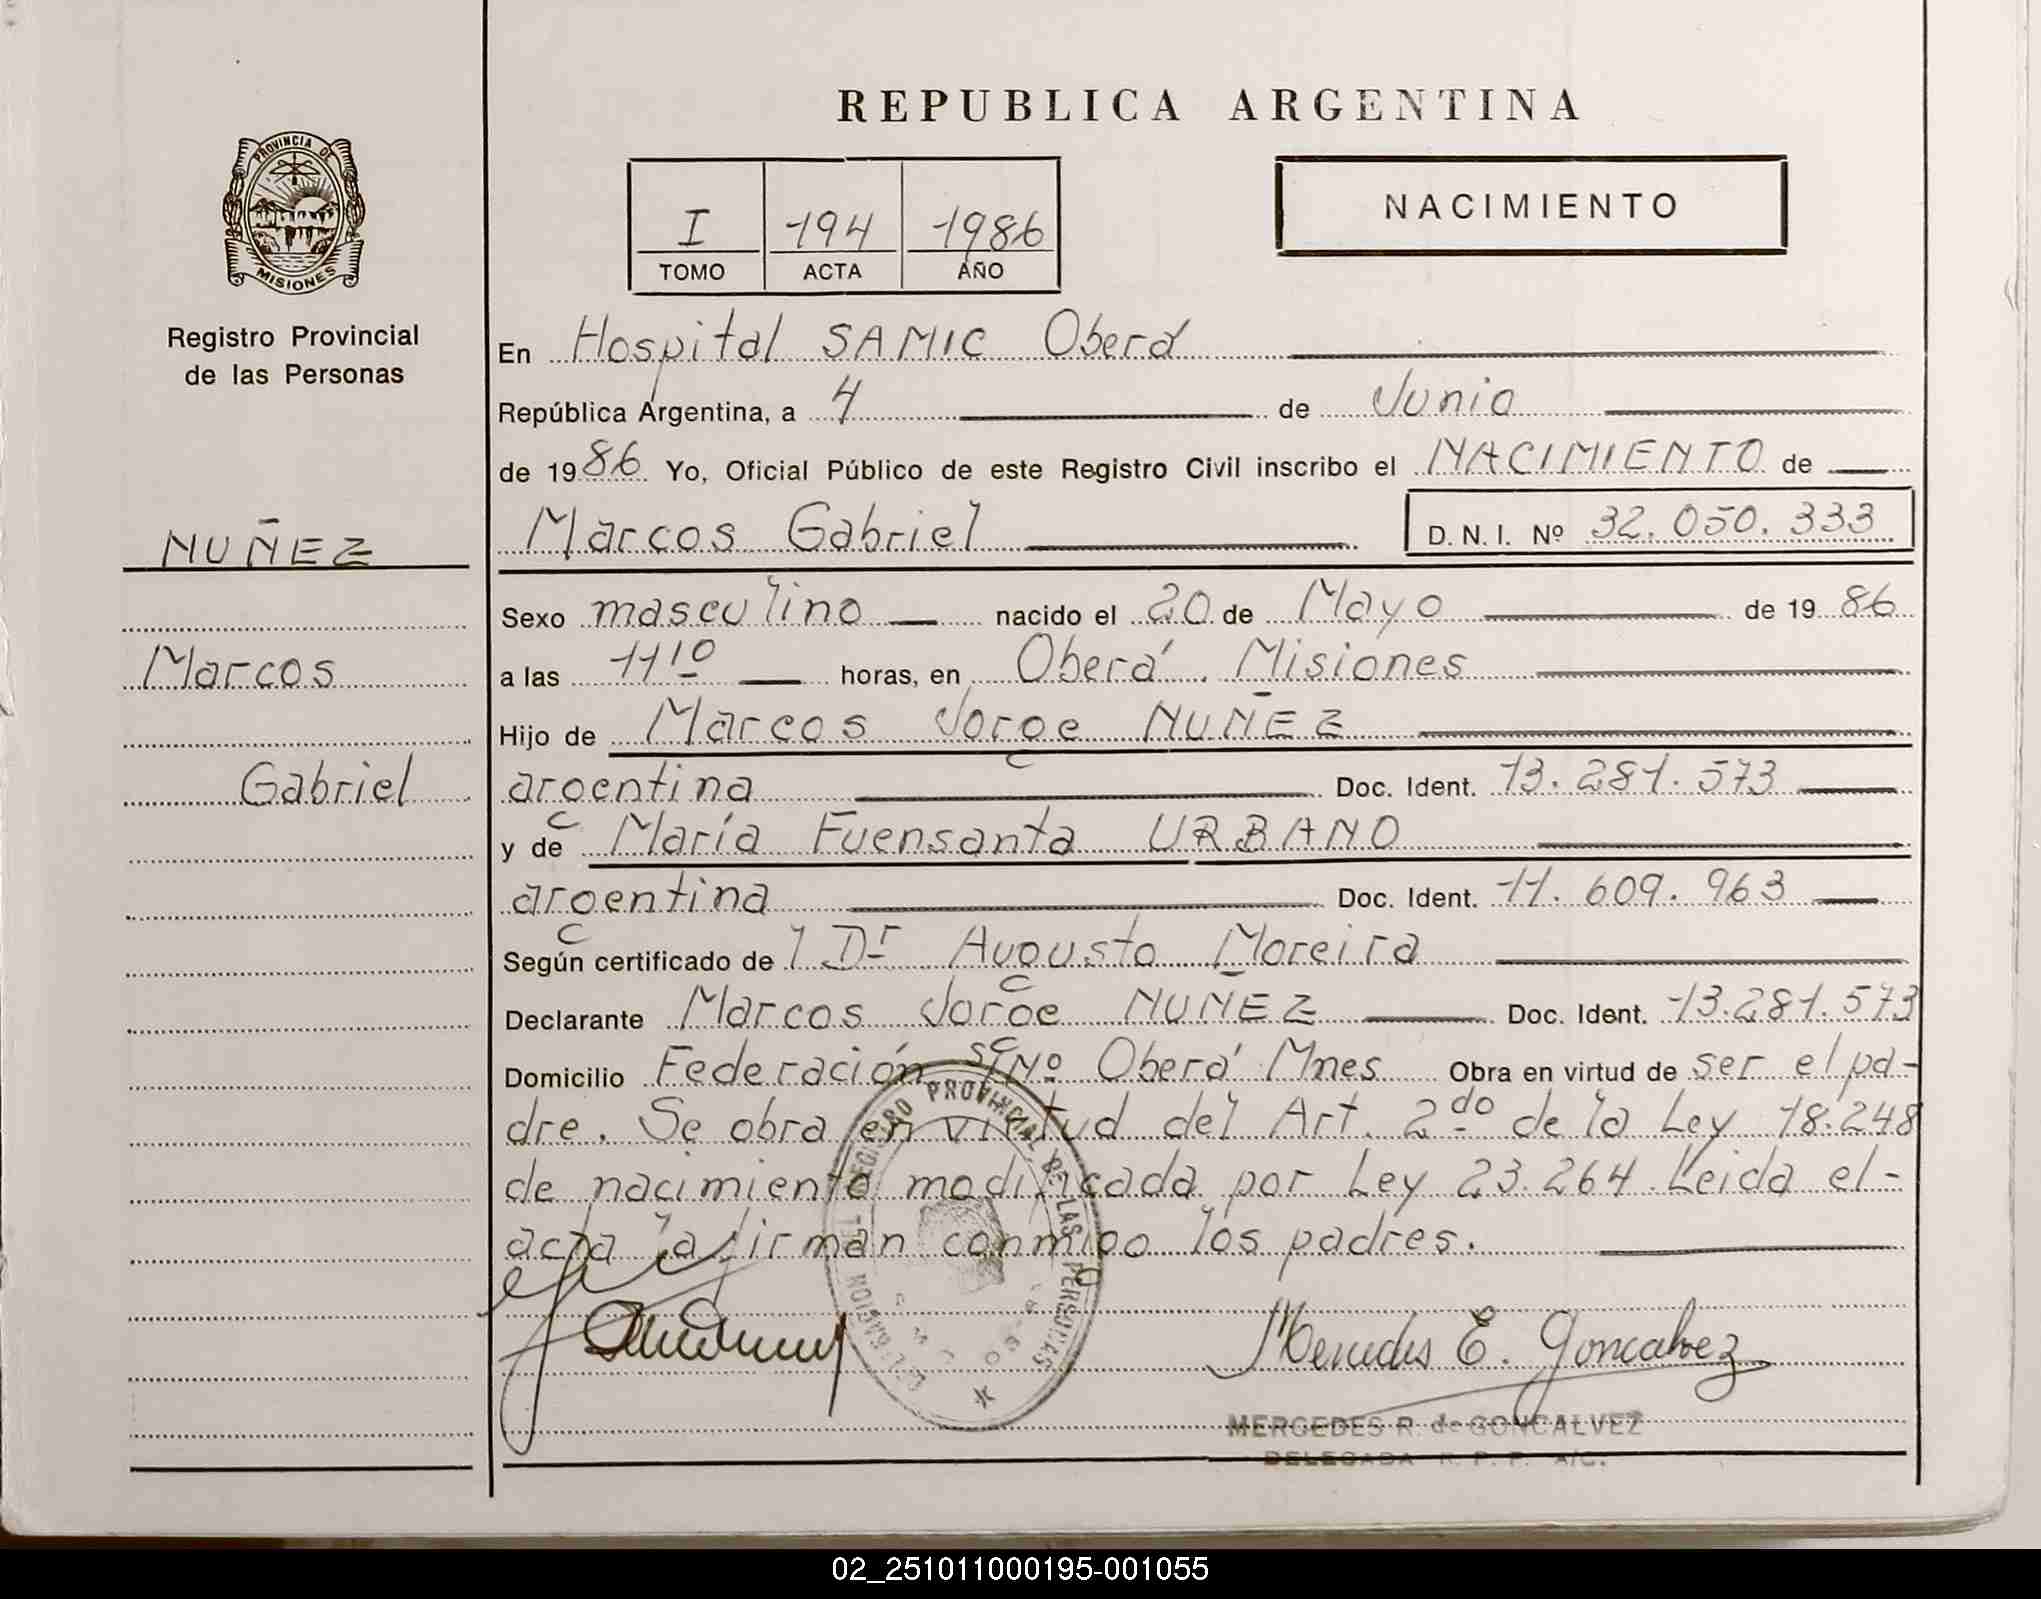 REPUBLICA ARGENTINA
PROVINCIA DE
MISIONES
Registro Provincial
de las Personas
I 194 1986
TOMO ACTA AÑO
NACIMIENTO
NUÑEZ
Marcos
Gabriel
En Hospital SAMIC Oberá
República Argentina, a 4 de Junio
de 1986 Yo, Oficial Público de este Registro Civil inscribo el NACIMIENTO de
Marcos Gabriel D. N. I. Nº 32.050.333
Sexo masculino nacido el 20 de Mayo de 1986
a las 11 10 horas, en Oberá Misiones
Hijo de Marcos Jorge NUÑEZ
argentina Doc. Ident. 13.281.573
y de María Fuensanta URBANO
argentina Doc. Ident. 11.609.963
Según certificado del Dr Augusto Moreira
Declarante Marcos Jorge NUÑEZ Doc. Ident. 13.281.573
Domicilio Federación S/Nº Oberá Mnes Obra en virtud de ser el pa-
dre. Se obra en virtud del Art. 2do de la Ley 18.248
de nacimiento modificada por Ley 23.264. Leida el-
acta la firman conmigo los padres.
REGISTRO PROVINCIAL DE LAS PERSONAS
DELEGACION
Mercedes E. Goncalvez
MERCEDES R. de GONCALVEZ
DELEGADA R. P. P. A/C.
02_251011000195-001055